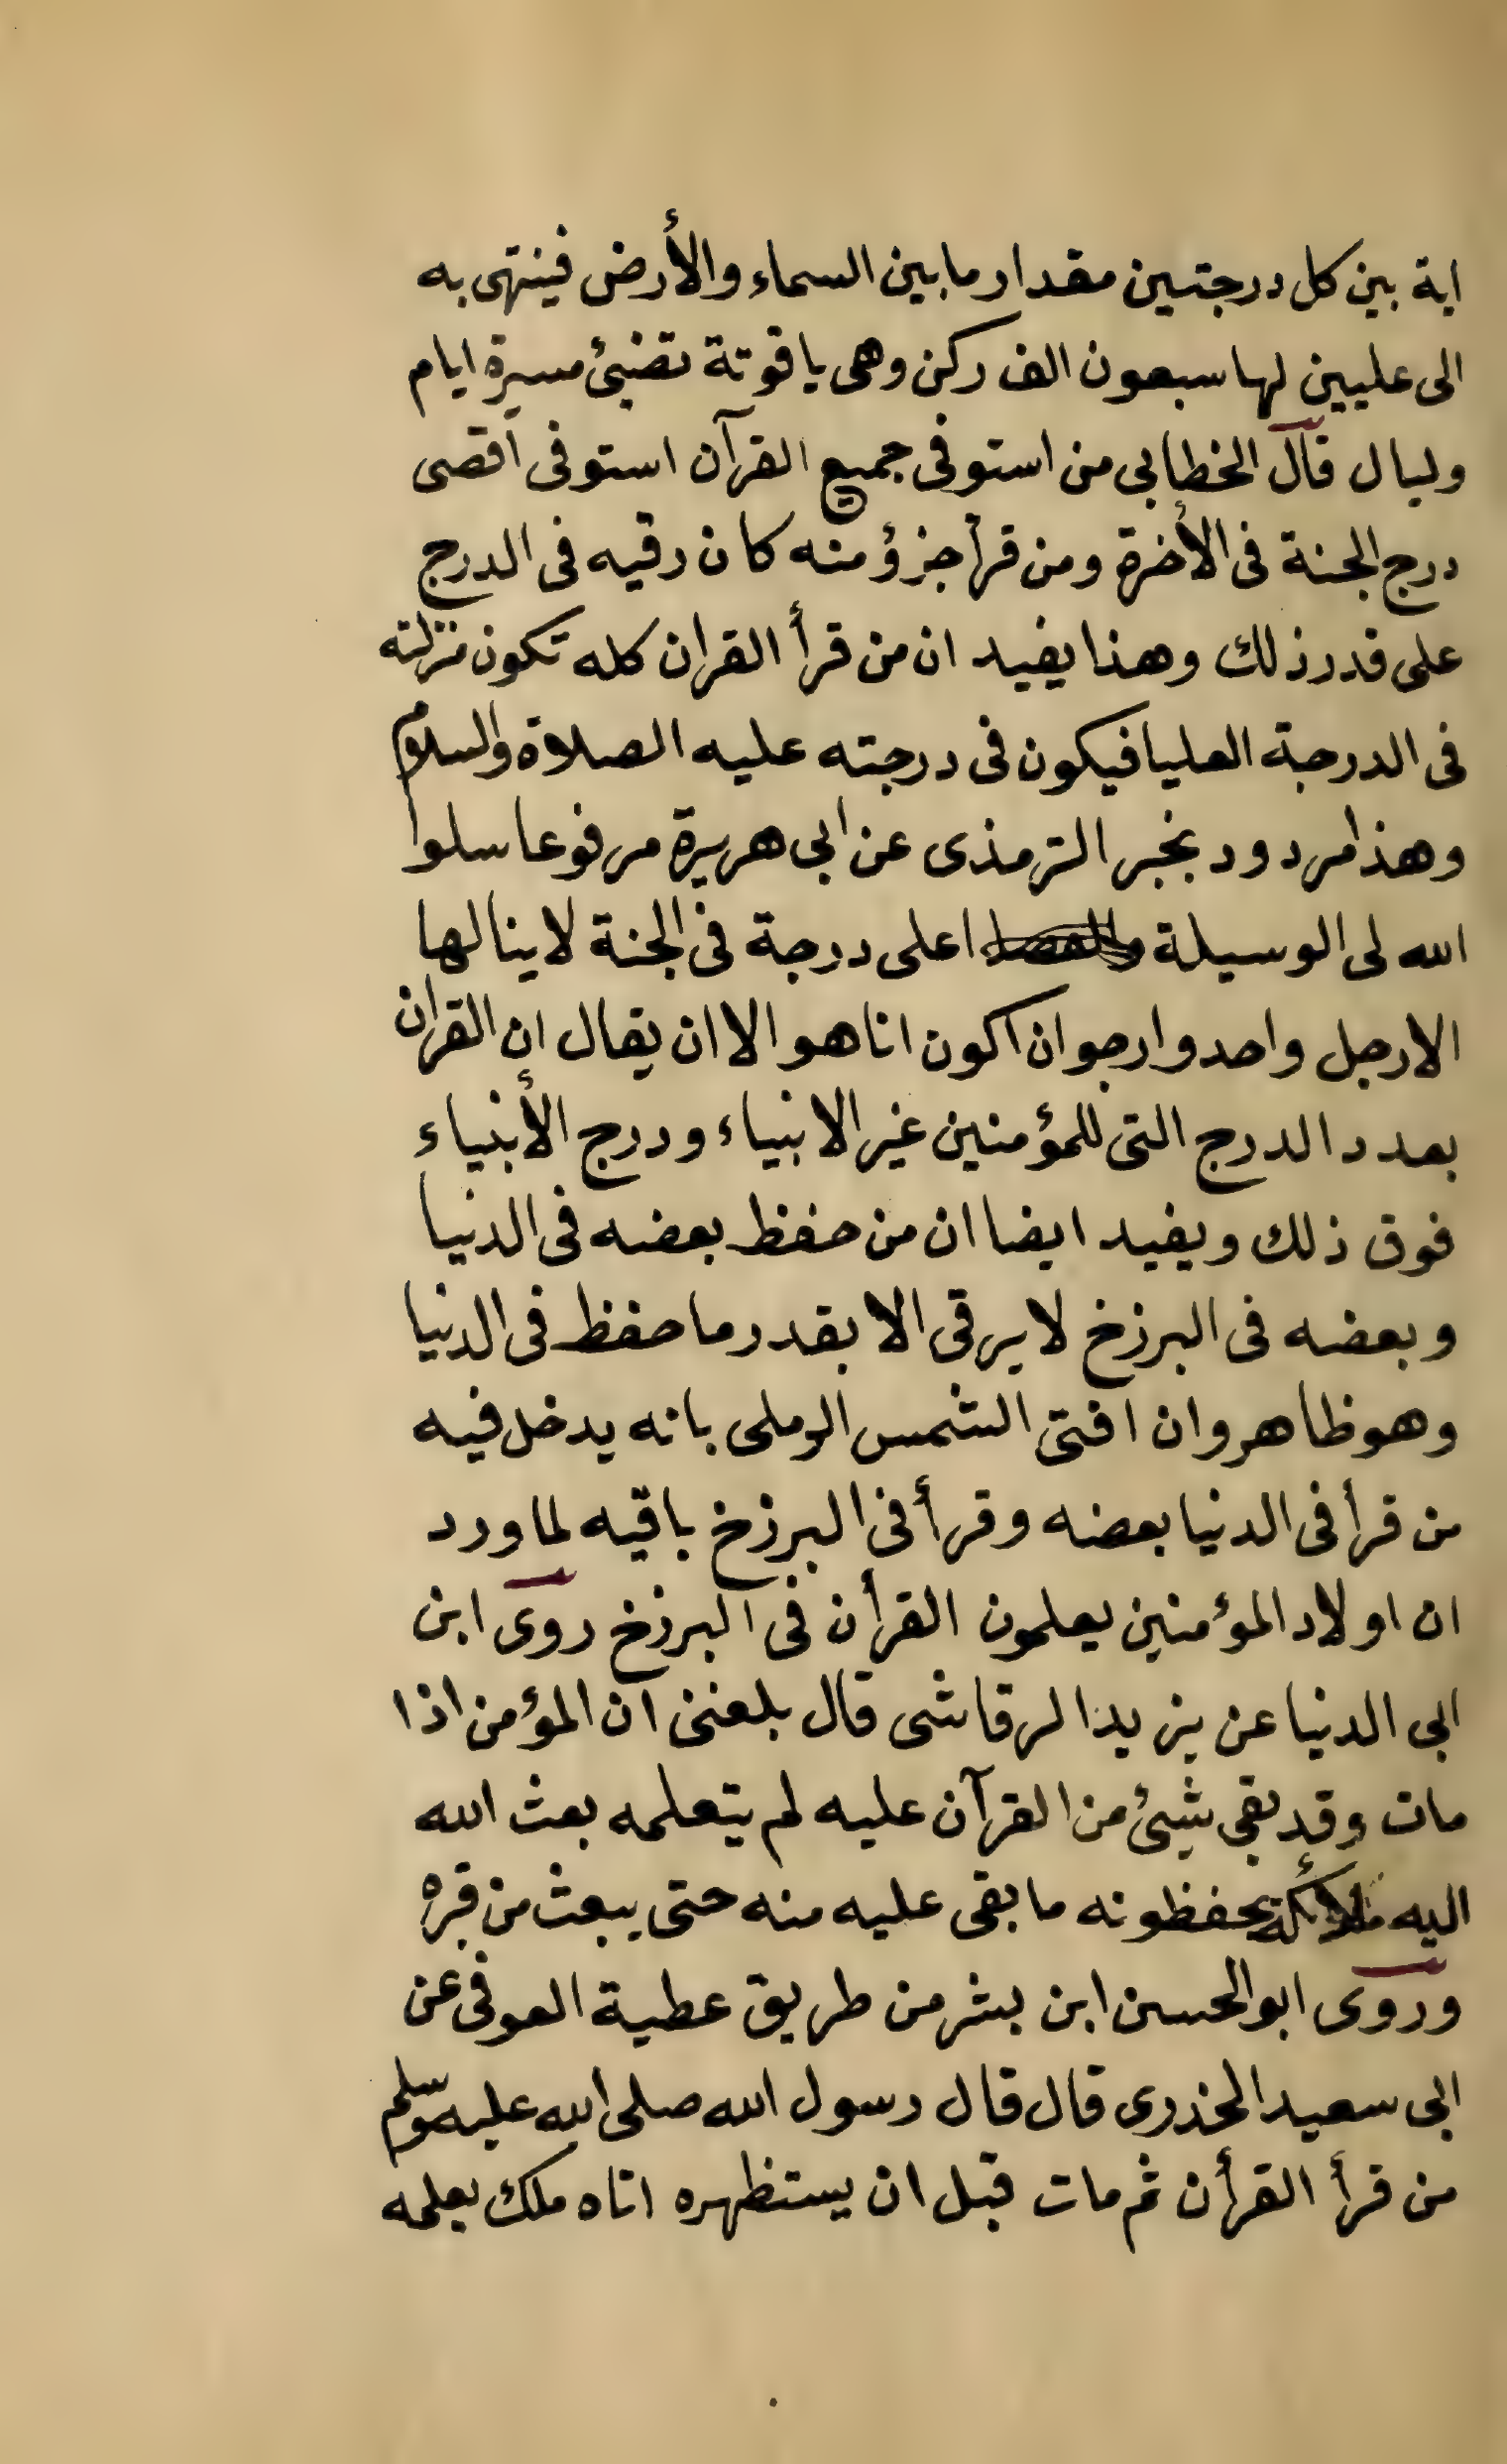 اية بين كل درجتين مقدار ما بين السماء والأرض فينتهى به
الى عليين لها سبعون الف ركن وهى ياقوتة تضيئ مسيرة ايام
وليال قال الخطابى من استوفى جميع القرآن استوفى أقصى
درج الجنة فى الأخرة ومن قرأ جزؤ منه كان رقيه فى الدرج
على قدر ذلك وهذا يفيد ان من قرأ القران كله تكون منزلته
فى الدرجة العليا فيكون فى درجته عليه الصلاة والسلام
وهذا مردود بخبر الترمذى عن ابى هريرة مرفوعا سلوا
الله لى الوسيلة اعلى درجة فى الجنة لا ينالها
الا رجل واحد وارجو ان اكون انا هو الا ان يقال ان القران
بعدد الدرج التى للمؤمنين غير الانبياء ودرج الأنبياء
فوق ذلك ويفيد ايضا ان من حفظ بعضه فى الدنيا
وبعضه فى البرزخ لا يرقى الا بقدر ما حفظ فى الدنيا
وهو ظاهر وان افتى الشمس الرملى بانه يدخل فيه
من قرأ فى الدنيا بعضه وقرأ فى البرزخ باقيه لما ورد
ان اولاد المؤمنين يعلمون القرأن فى البرزخ روى ابن
ابى الدنيا عن يزيد الرقاشى قال بلغنى ان المؤمن اذا
مات وقد بقى شيئ من القرآن عليه لم يتعلمه بعث الله
اليه ملائكة يحفظونه ما بقى عليه منه حتى يبعث من قبره
وروى ابو الحسن ابن بشر من طريق عطية العوفى عن
ابى سعيد الخذرى قال قال رسول الله صلى الله عليه وسلم
من قرأ القرأن ثم مات قبل ان يستظهره اتاه ملك يعلمه